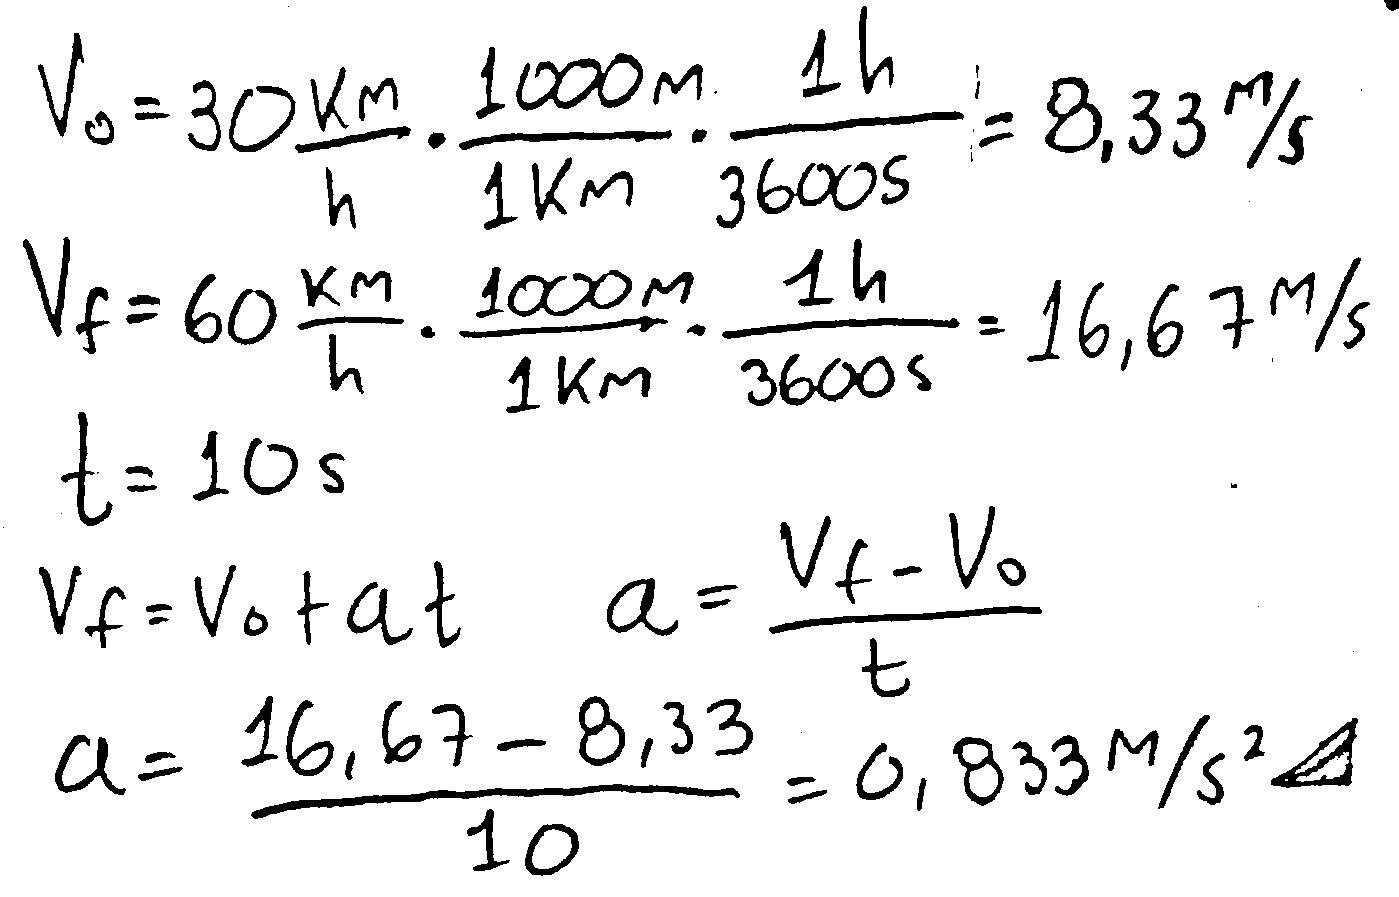 V₀ = 30 Km/h · 1000m/1Km · 1h/3600s = 8,33 m/s
Vf = 60 Km/h · 1000m/1Km · 1h/3600s = 16,67 m/s
t = 10 s
Vf = V₀ + at   a = (Vf - V₀)/t
a = (16,67 - 8,33)/10 = 0,833 m/s²